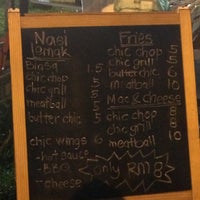 Nasi
lemak
Biasa 1.5
chic chop 5
chic grill 5
meatball 5
butter chic 5
chic wings 6
-hot sauce
-BBQ
-cheese
Fries
chic chop 5
chic grill 5
butter chic 6
meatball 10
Mac & cheese
chic chop 8
chic grill 8
meatball 10
only RM 8